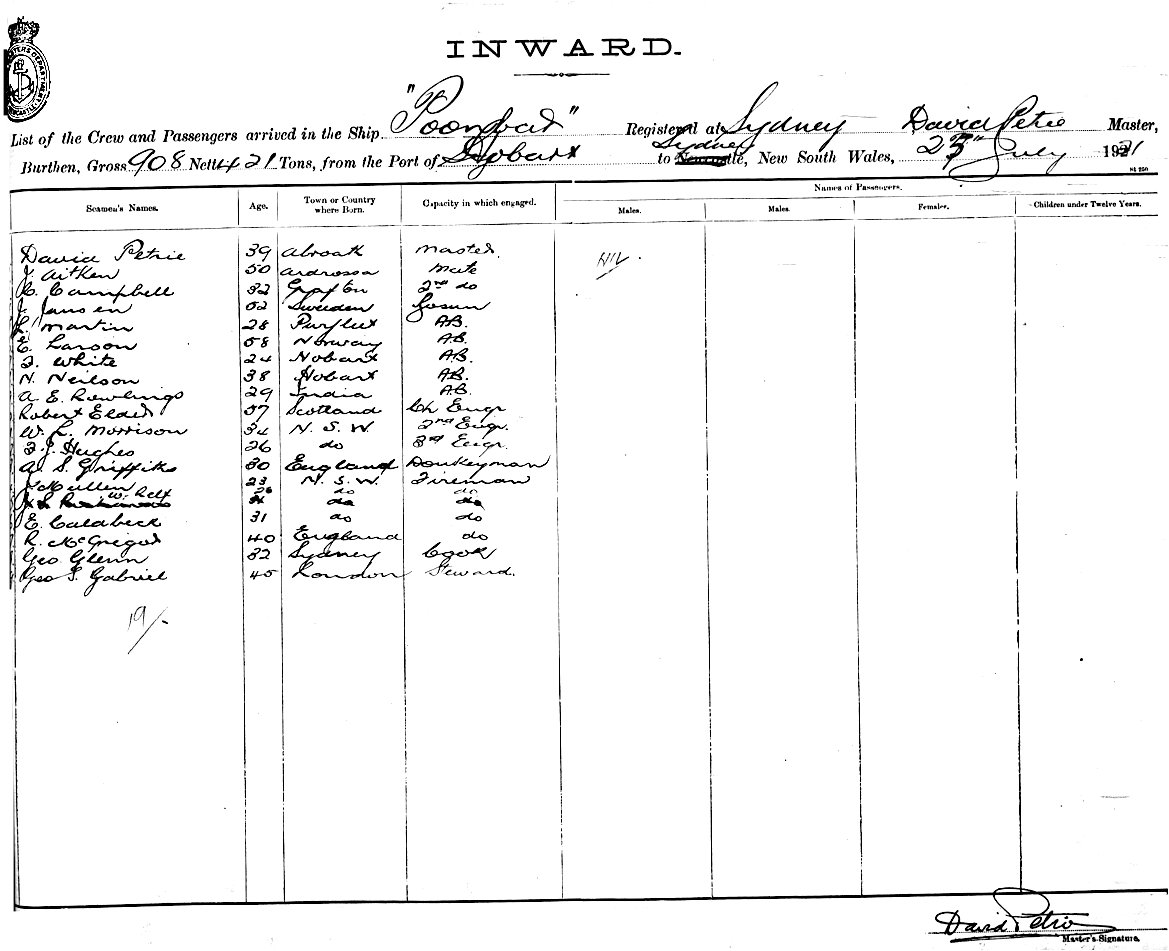 INWARD.
List of the Crew and Passengers arrived in the Ship "Poonbar" Registered at Sydney David Petrie Master,
Burthen, Gross 908 Nett 421 Tons, from the Port of Hobart to Sydney Newcastle, New South Wales, 23" July 1921
Names of Passengers.
Seamen's Names. Age. Town or Country where Born. Capacity in which engaged. Males. Males. Females. Children under Twelve Years.
David Petrie 39 Abroath Master. Nil.
J. Aitken 50 Ardrossa Mate
C. Campbell 32 Grafton 2nd do
J. Jansen 52 Sweeden Bosun
L. Martin 28 Purfleet A.B.
E. Larson 58 Norway A.B.
F. White 24 Hobart A.B.
N. Neilson 38 Hobart A.B.
A. E. Rawlings 29 India A.B.
Robert Elder 57 Scotland Ch Engr
W. L. Morrison 34 N. S. W. 2nd Engr.
F. J. Hughes 26 do 3rd Engr.
A. S. Griffiths 30 England Donkeyman
J. McMullen 23 N. S. W. Fireman
W. 26 do do
do do
E. Caldbeck 31 do do
R. McGregor 40 England do
Geo Glenn 32 Sydney Cook
Geo S. Gabriel 45 London Steward.
19/-
David Petrie
Master's Signature.